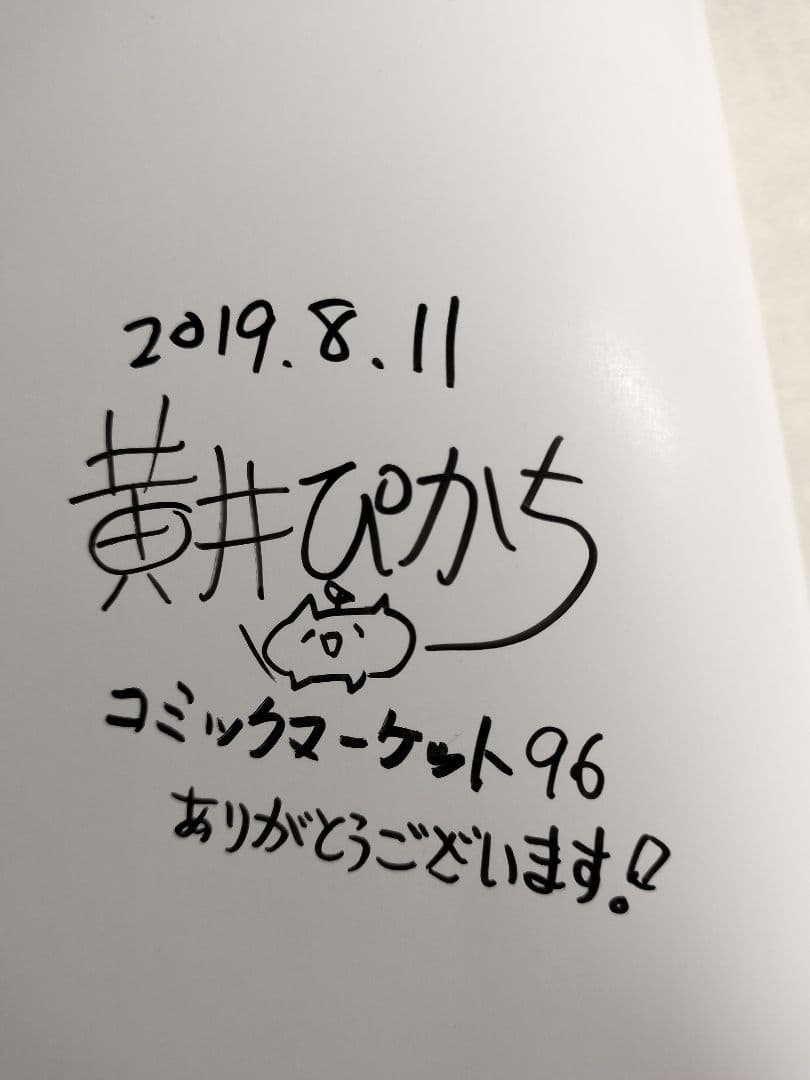 2019.8.11
黄井ぴかち
コミックマーケット96
ありがとうございます!